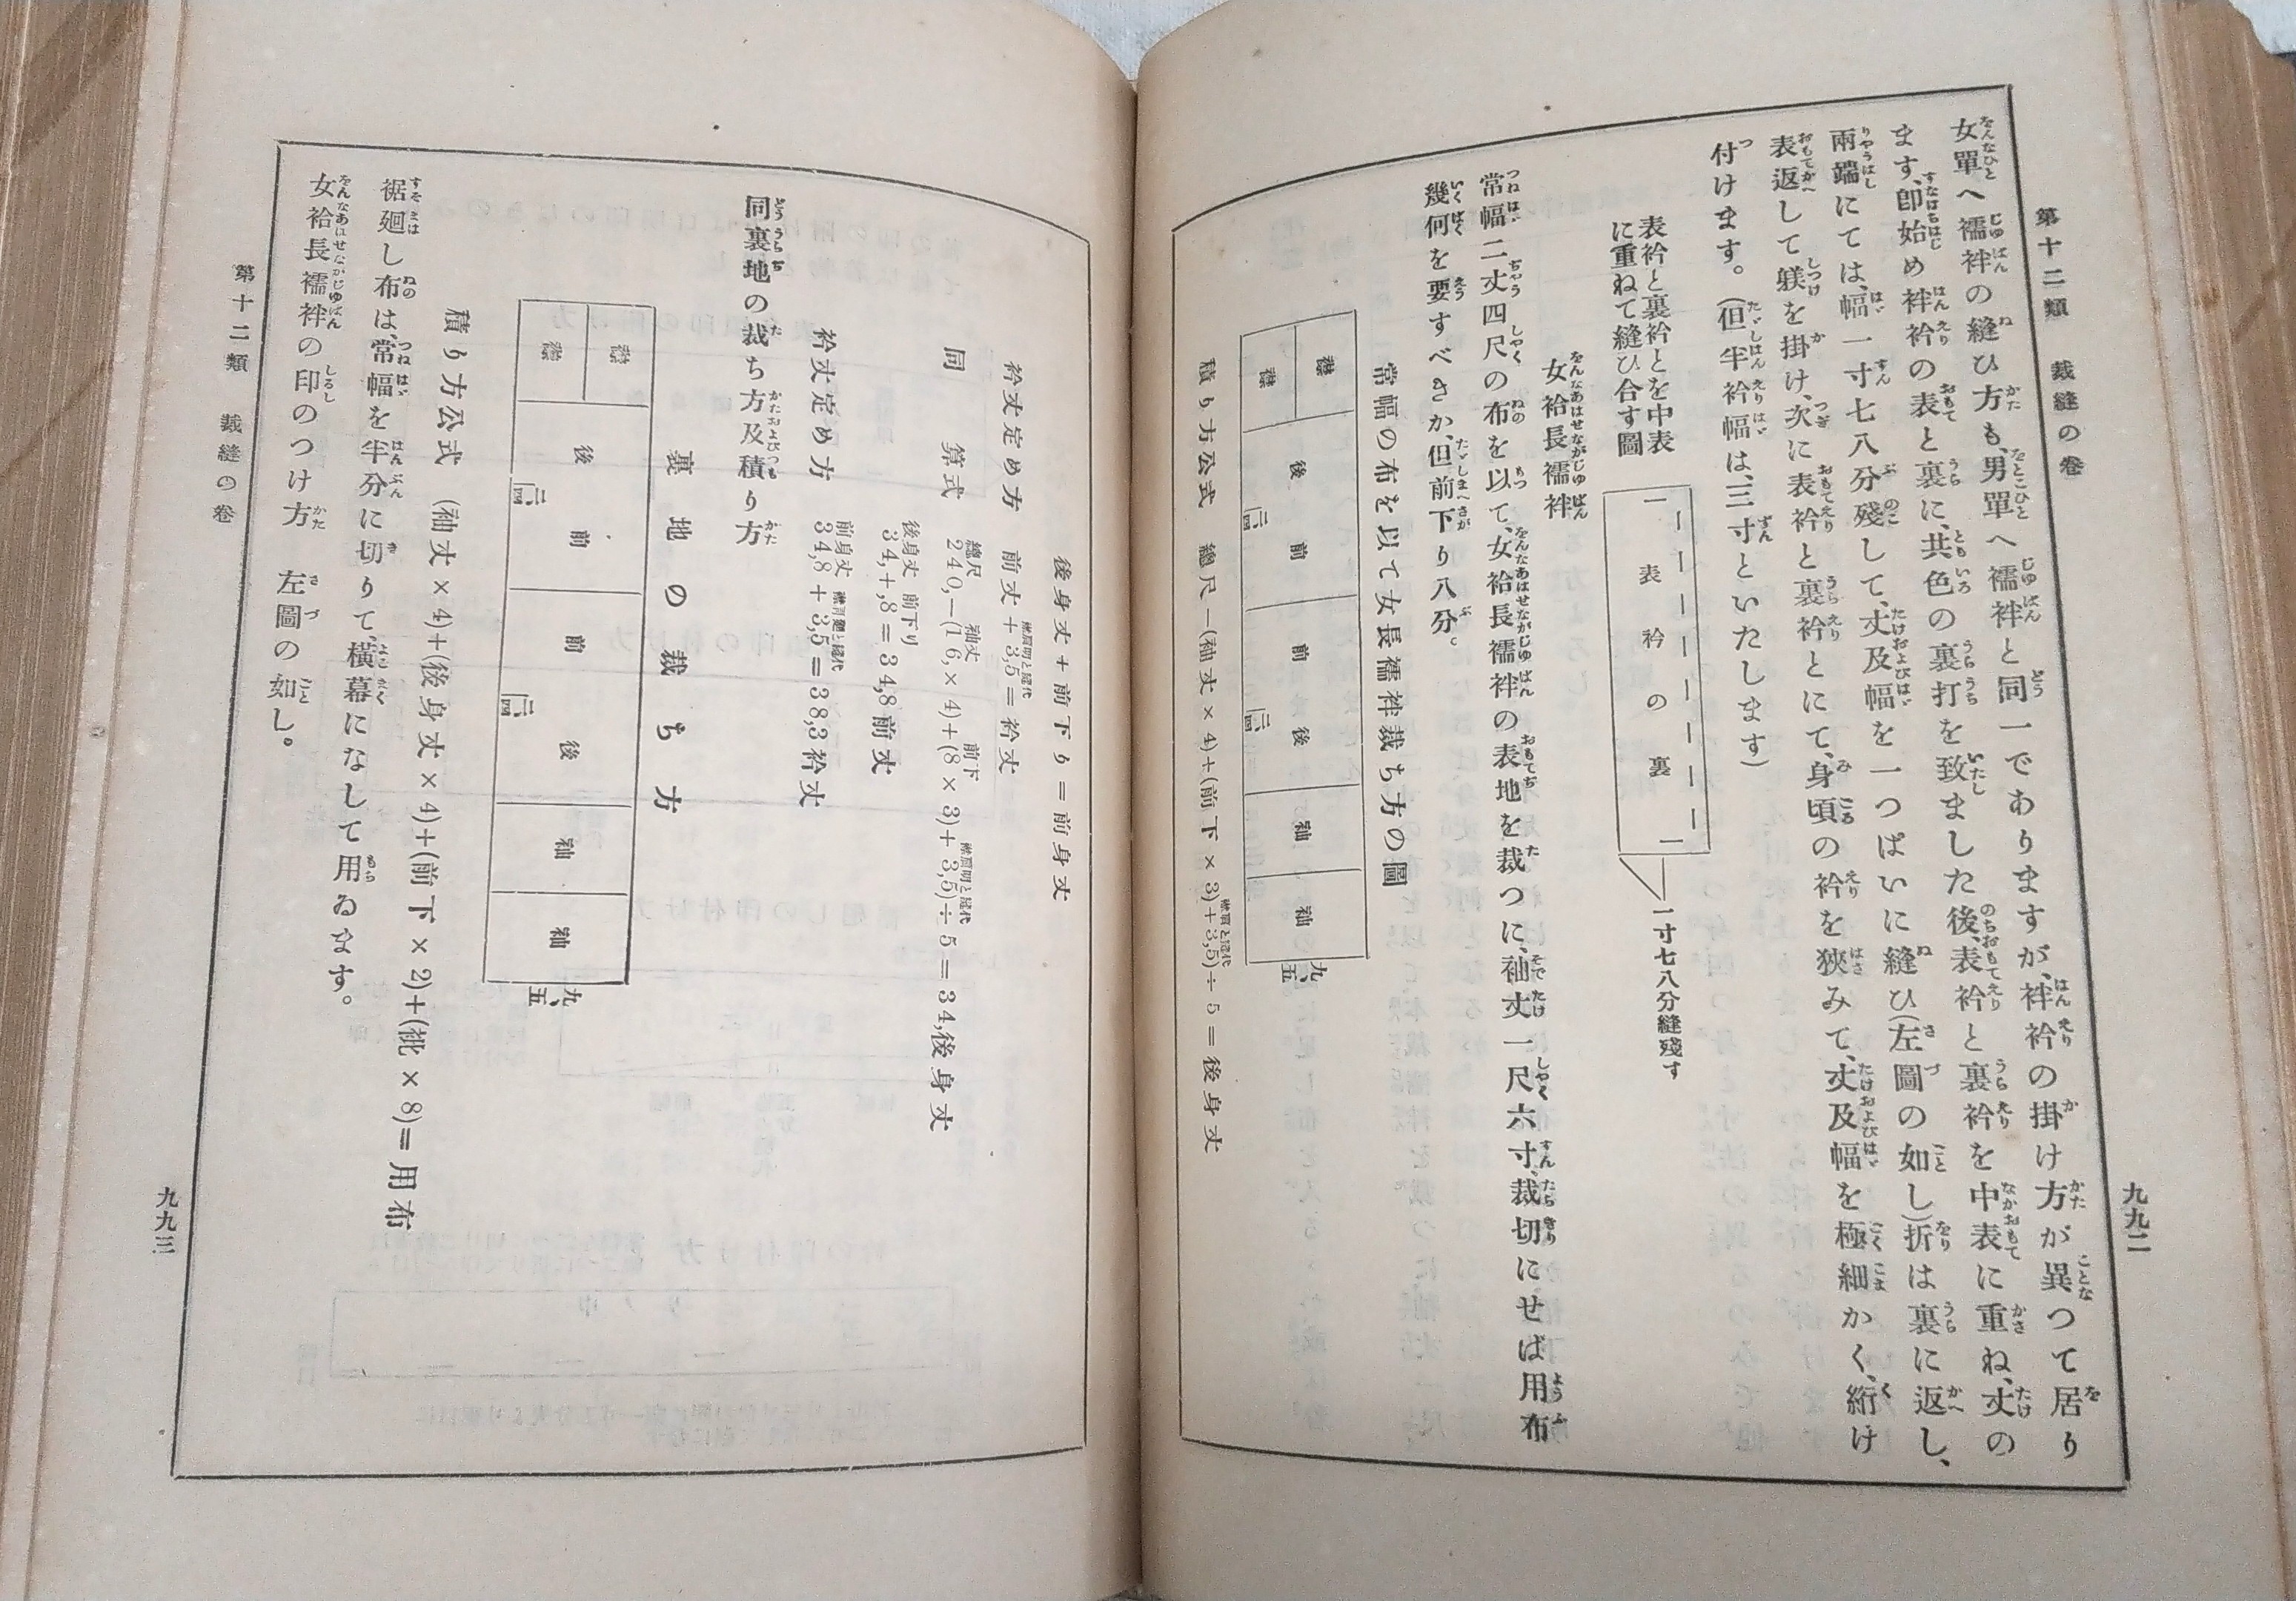 第十二類　裁縫の卷
九九二
女單へ襦袢の縫ひ方も、男單へ襦袢と同一でありますが、袢衿の掛け方が異つて居り
ます、卽始め袢衿の表と裏に、共色の裏打を致ました後、表衿と裏衿を中表に重ね、丈の
兩端にては、幅一寸七八分殘して、丈及幅を一つぱいに縫ひ(左圖の如し)折は裏に返し、
表返して躾を掛け、次に表衿と裏衿とにて、身頃の衿を狹みて、丈及幅を極細かく、絎け
付けます。(但半衿幅は、三寸といたします)
表衿と裏衿とを中表
に重ねて縫ひ合す圖
表衿の裏
一寸七八分縫殘す
女袷長襦袢
常幅二丈四尺の布を以て、女袷長襦袢の表地を裁つに、袖丈一尺六寸、裁切にせば用布
幾何を要すべきか、但前下り八分。
常幅の布を以て女長襦袢裁ち方の圖
後
前
前
後
袖
袖
九、五
積り方公式　總尺－(袖丈×4)+(前下×3)+3,5)÷5=後身丈
後身丈+前下り=前身丈
衿丈定め方　前丈+3,5=衿丈
同　算式　240,－(16,×4)+(8×3)+3,5)÷5=34,後身丈
總尺　袖丈　前下
後身丈　前下り
34,+,8=34,8前丈
衿丈定め方　34,8+3,5=38,3衿丈
前身丈
同裏地の裁ち方及積り方
裏地の裁ち方
後
前
前
後
袖
袖
九、五
積り方公式　(袖丈×4)+(後身丈×4)+(前下×2)+(×8)=用布
裾廻し布は、常幅を半分に切りて、橫幕になして用ゐます。
女袷長襦袢の印のつけ方　左圖の如し。
第十二類　裁縫の卷
九九三